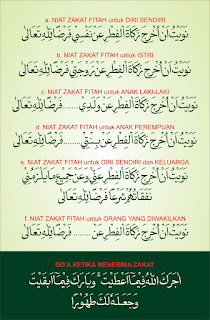 a. NIAT ZAKAT FITAH untuk DIRI SENDIRI
نَوَيْتُ اَنْ اُخْرِجَ زَكَاةَ الْفِطْرِ عَنْ نَفْسِيْ فَرْضًا لِلّٰهِ تَعَالَى
b. NIAT ZAKAT FITAH untuk ISTRI
نَوَيْتُ اَنْ اُخْرِجَ زَكَاةَ الْفِطْرِ عَنْ زَوْجَتِيْ فَرْضًا لِلّٰهِ تَعَالَى
c. NIAT ZAKAT FITAH untuk ANAK LAKI-LAKI
نَوَيْتُ اَنْ اُخْرِجَ زَكَاةَ الْفِطْرِ عَنْ وَلَدِيْ ..... فَرْضًا لِلّٰهِ تَعَالَى
d. NIAT ZAKAT FITAH untuk ANAK PEREMPUAN
نَوَيْتُ اَنْ اُخْرِجَ زَكَاةَ الْفِطْرِ عَنْ بِنْتِيْ ..... فَرْضًا لِلّٰهِ تَعَالَى
e. NIAT ZAKAT FITAH untuk DIRI SENDIRI dan KELUARGA
نَوَيْتُ اَنْ اُخْرِجَ زَكَاةَ الْفِطْرِ عَنِّيْ وَعَنْ جَمِيْعِ مَا يَلْزَمُنِيْ
نَفَقَاتُهُمْ شَرْعًا فَرْضًا لِلّٰهِ تَعَالَى
f. NIAT ZAKAT FITAH untuk ORANG YANG DIWAKILKAN
نَوَيْتُ اَنْ اُخْرِجَ زَكَاةَ الْفِطْرِ عَنْ ........ فَرْضًا لِلّٰهِ تَعَالَى
DO'A KETIKA MENERIMA ZAKAT
اٰجَرَكَ اللّٰهُ فِيْمَا اَعْطَيْتَ وَبَارَكَ فِيْمَا اَبْقَيْتَ
وَجَعَلَهُ لَكَ طَهُوْرًا